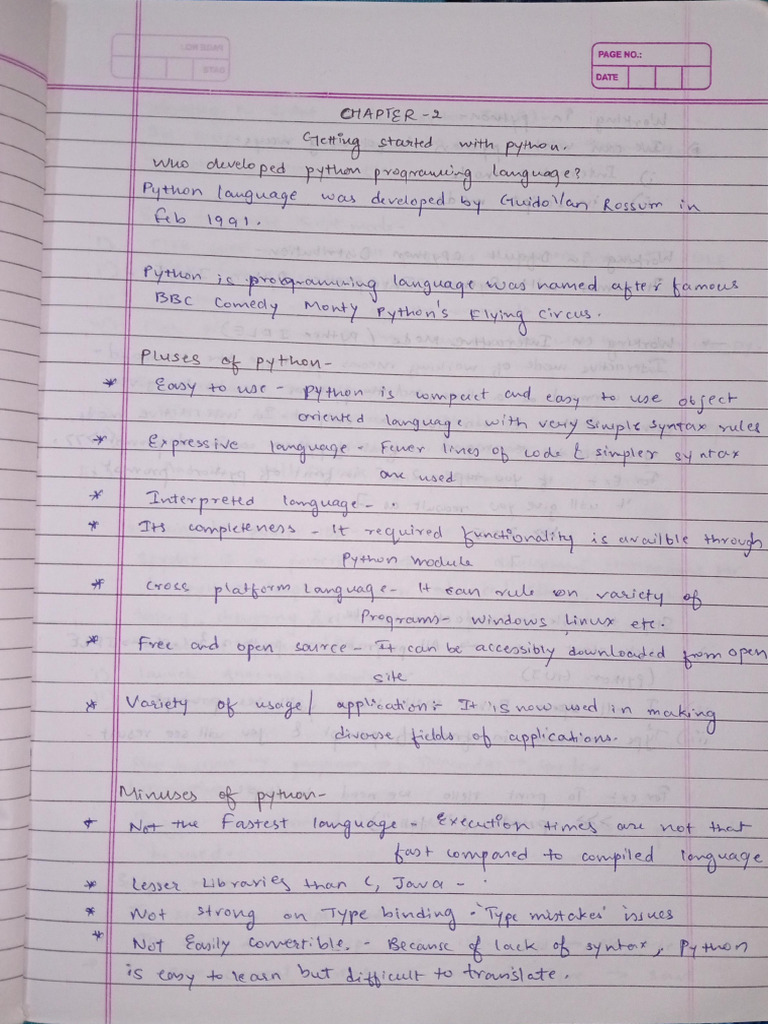 PAGE NO.:
DATE
CHAPTER-2
Getting started with python.
Who developed python programing language?
Python language was developed by Guido Van Rossum in
feb 1991.
Python is programming language was named after famous
BBC Comedy Monty Python's Flying Circus.
Pluses of python-
* Easy to use - python is compact and easy to use object
oriented language with very simple syntax rules
* Expressive language - Fewer lines of code & simpler syntax
are used
* Interpreted language - ..
* Its completeness - It required functionality is availble through
Python module
* Cross platform language - It can rule on variety of
Programs - windows, Linux etc.
* Free and open source - It can be accessibly downloaded from open
site
* Variety of usage/ application:- It is now used in making
diverse fields of applications.
Minuses of python-
* Not the Fastest language - Execution times are not that
fast compared to compiled language
* Lesser Libraries than C, Java - .
* Not strong on Type binding - 'Type mistakes' issues
* Not Easily convertible. - Because of lack of syntax, Python
is easy to learn but difficult to translate.